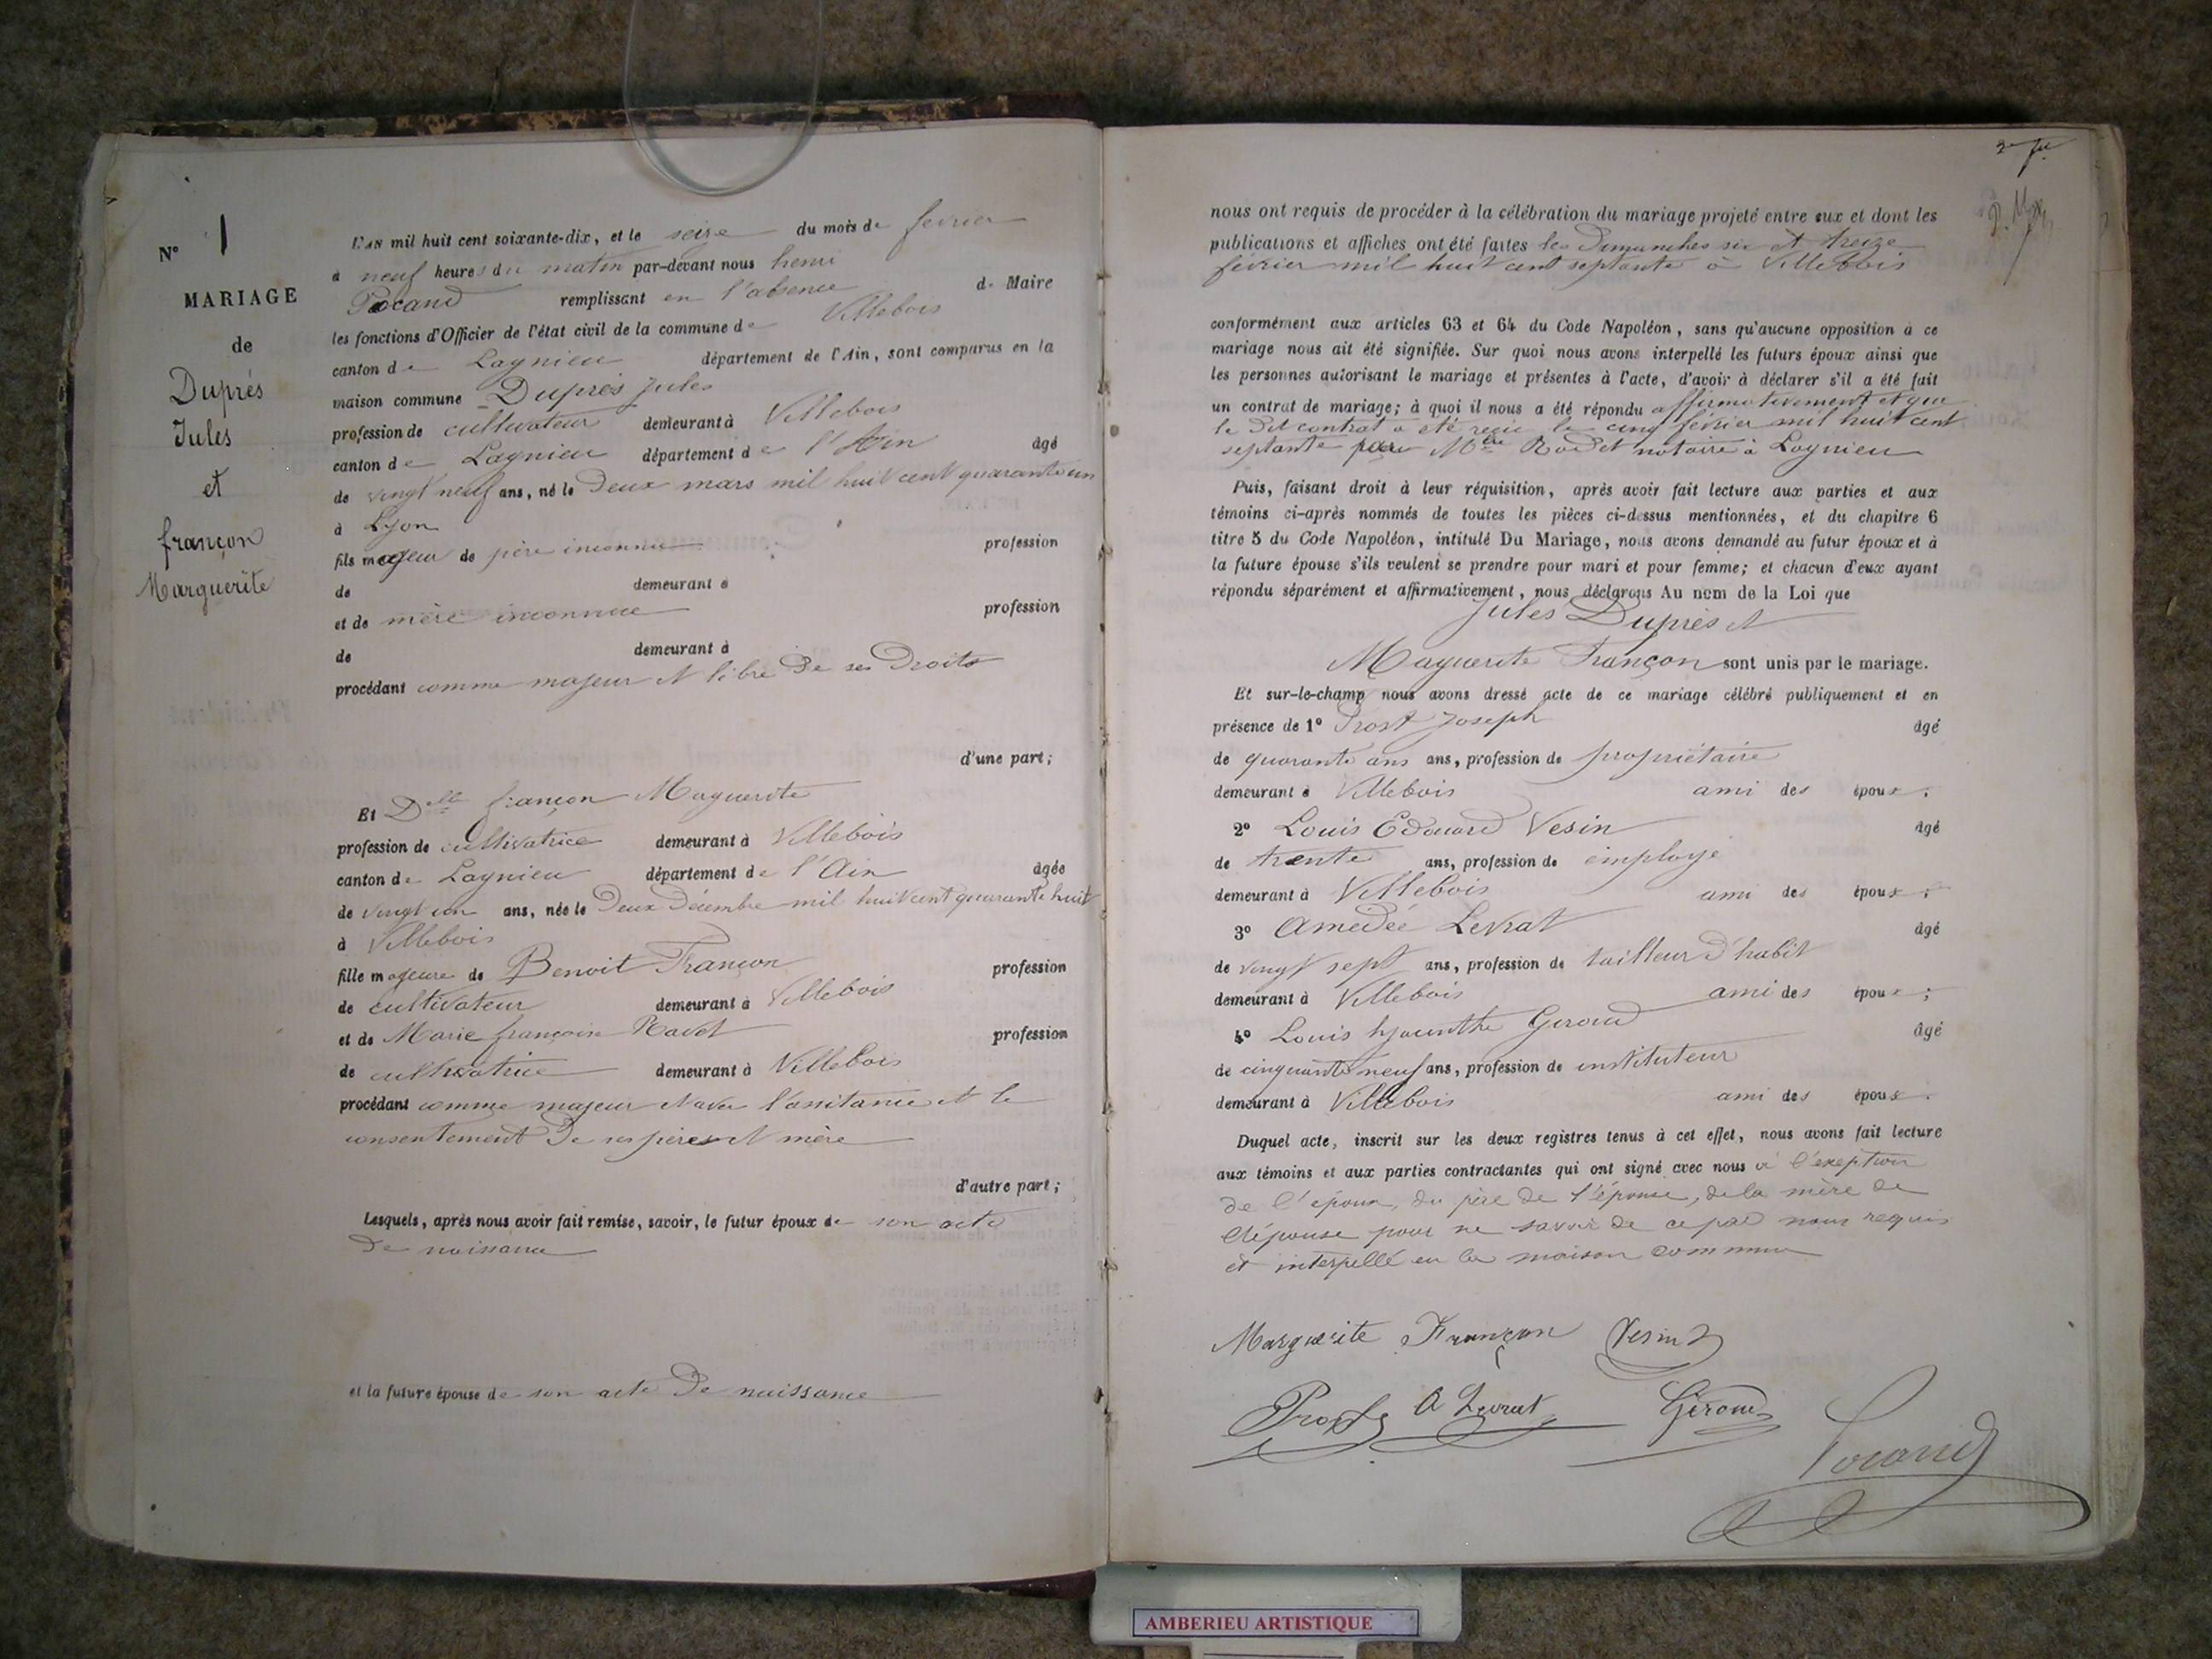 N° 1
MARIAGE
de
Duprés
Jules
et
françon
Marguerite
L'an mil huit cent soixante-dix, et le seize du mois de fevrier
à neuf heures du matin par-devant nous henri
Pocand remplissant en l'absence de Maire
les fonctions d'Officier de l'état civil de la commune de Villebois
canton de Lagnieu département de l'Ain, sont comparus en la
maison commune Duprés Jules
profession de cultivateur demeurant à Villebois
canton de Lagnieu département de l'Ain âgé
de vingt neuf ans, né le Deux mars mil huit cent quarante un
à Lyon
fils majeur de père inconnu profession
de demeurant à
et de mère inconnue profession
de demeurant à
procédant comme majeur et libre De ses Droits
d'une part;
Et Delle françon Maguerite
profession de cultivatrice demeurant à Villebois
canton de Lagnieu département de l'Ain âgée
de vingt un ans, née le Deux Décembre mil huit cent quarante huit
à Villebois
fille majeure de Benoit Françon
profession
de cultivateur demeurant à Villebois
et de Marie françoise Ravot profession
de cultivatrice demeurant à Villebois
procédant comme majeur et avec l'assitance et le
consentement De ses pères et mère
d'autre part;
Lesquels, après nous avoir fait remise, savoir, le futur époux de son acte
De naissance
et la future épouse de son acte De naissance
nous ont requis de procéder à la célébration du mariage projeté entre eux et dont les
publications et affiches ont été faites les Dimanches six et treize
février mil huit cent septante à Villebois
conformément aux articles 63 et 64 du Code Napoléon, sans qu'aucune opposition à ce
mariage nous ait été signifiée. Sur quoi nous avons interpellé les futurs époux ainsi que
les personnes autorisant le mariage et présentes à l'acte, d'avoir à déclarer s'il a été fait
un contrat de mariage; à quoi il nous a été répondu affirmativement et que
le dit contrat a été reçu le cinq février mil huit cent
septante par Mtre Rodet notaire à Lagnieu
Puis, faisant droit à leur réquisition, après avoir fait lecture aux parties et aux
témoins ci-après nommés de toutes les pièces ci-dessus mentionnées, et du chapitre 6
titre 5 du Code Napoléon, intitulé Du Mariage, nous avons demandé au futur époux et à
la future épouse s'ils veulent se prendre pour mari et pour femme; et chacun d'eux ayant
répondu séparément et affirmativement, nous déclarons Au nom de la Loi que
Jules Duprés et
Maguerite Françon sont unis par le mariage.
Et sur-le-champ nous avons dressé acte de ce mariage célébré publiquement et en
présence de 1° Prost Joseph âgé
de quarante ans ans, profession de propriétaire
demeurant à Villebois ami des époux;
2° Louis Edouard Vesin âgé
de trente ans, profession de employé
demeurant à Villebois ami des époux;
3° Amedée Levrat âgé
de vingt sept ans, profession de tailleur d'habit
demeurant à Villebois ami des époux;
4° Louis hyacinthe Giroud âgé
de cinquante neuf ans, profession de instituteur
demeurant à Villebois ami des époux.
Duquel acte, inscrit sur les deux registres tenus à cet effet, nous avons fait lecture
aux témoins et aux parties contractantes qui ont signé avec nous à l'exeption
de l'époux, du père de l'épouse, de la mère de
l'épouse pour ne savoir de ce par nous requis
et interpellé en la maison commune
Marguerite Françon Vesin
Prost A Levrat Giroud
Pocand
AMBERIEU ARTISTIQUE